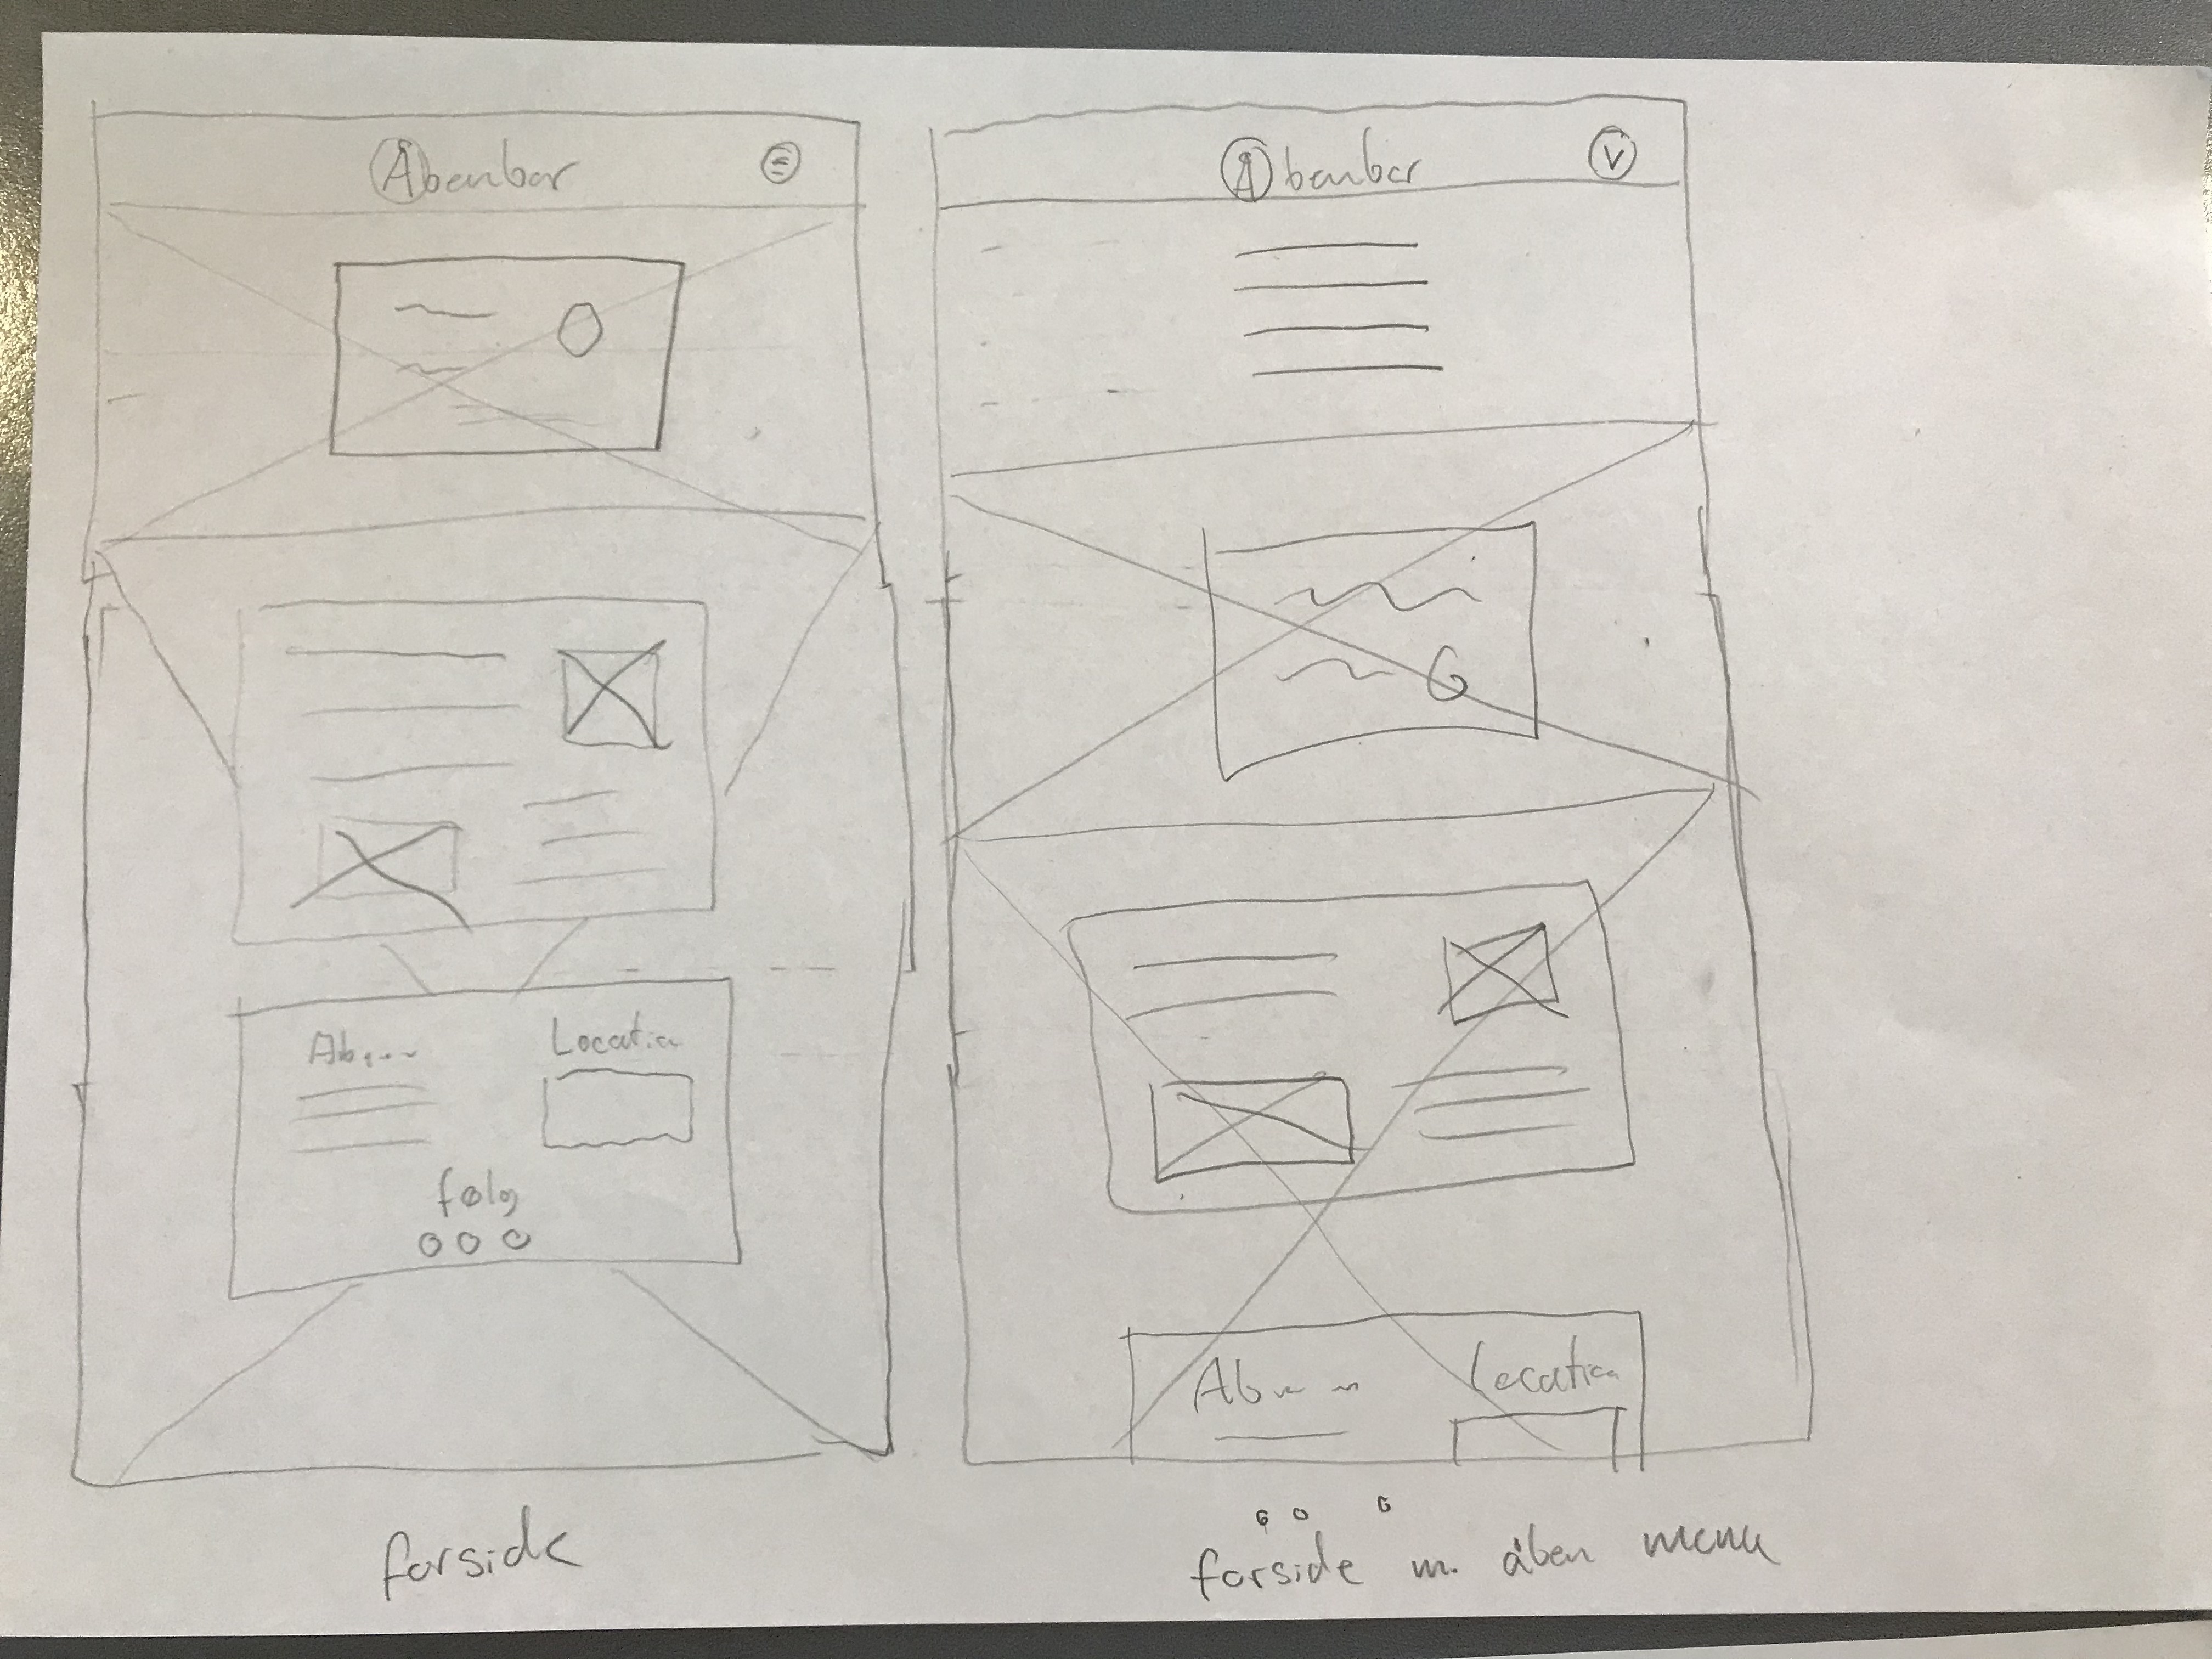 Åbenbar
Ab
Location
følg
forside
Åbenbar
V
Ab
Location
forside m. åben menu